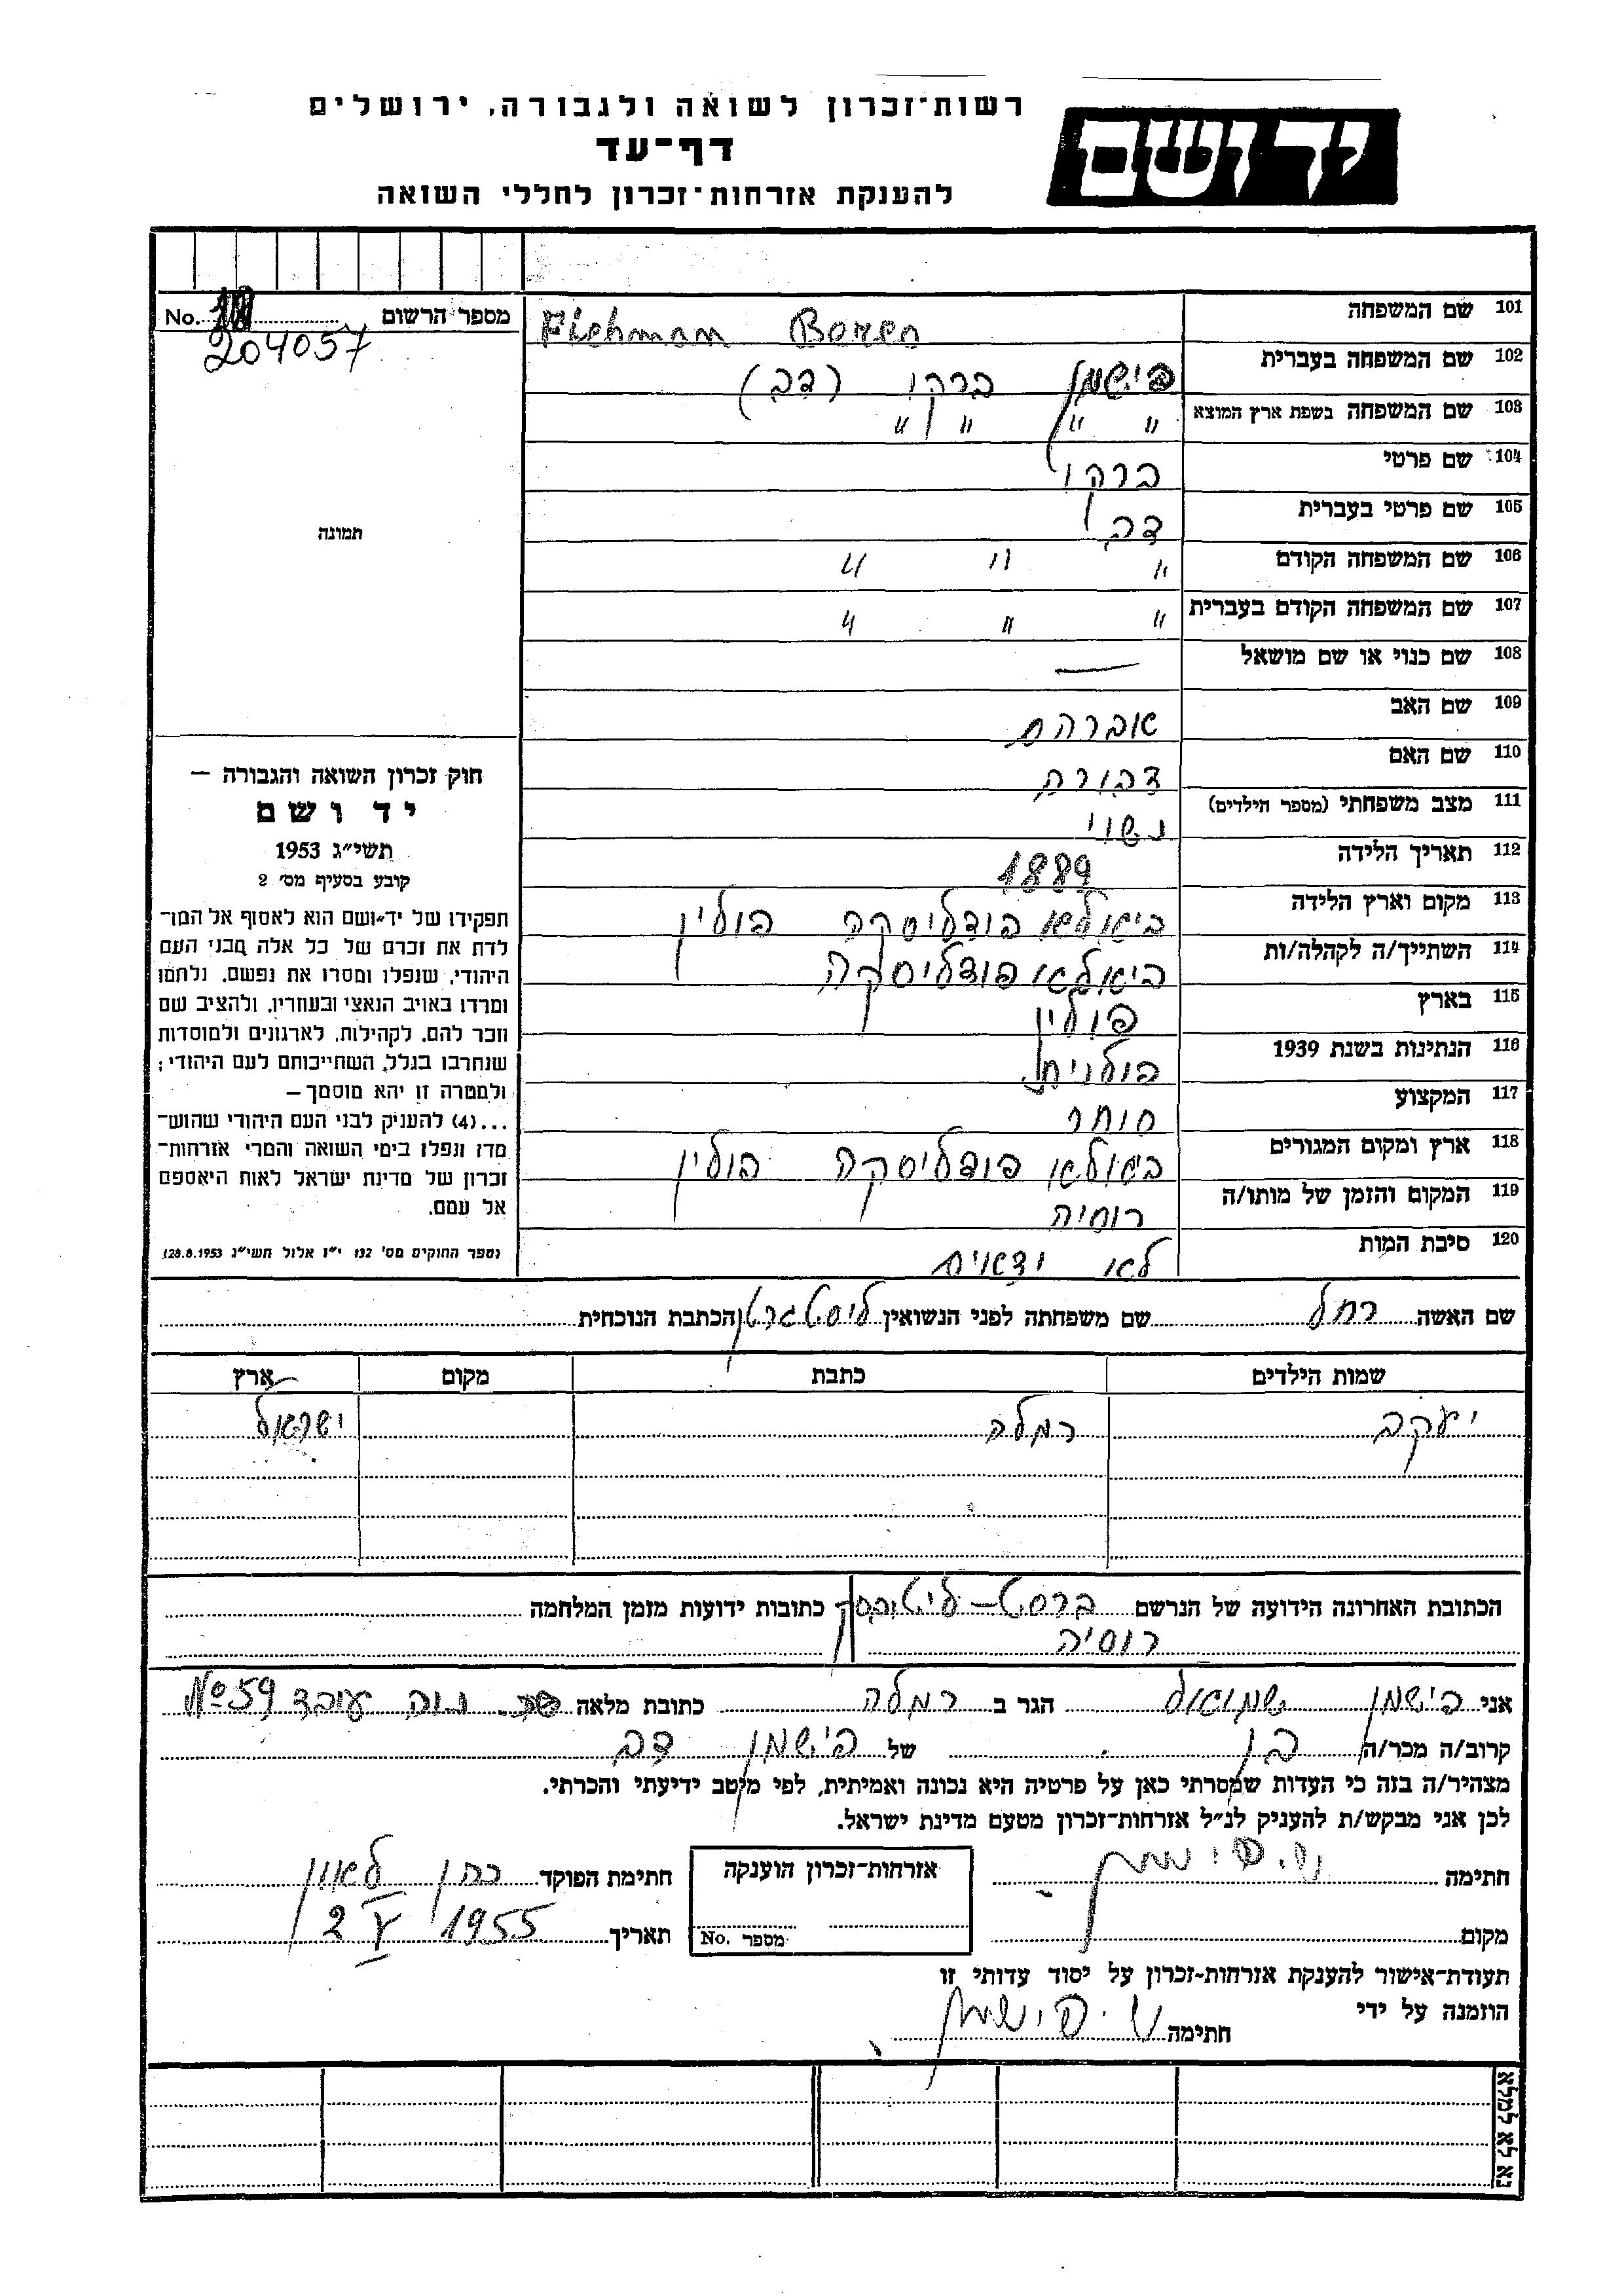 רשות־זכרון לשואה ולגבורה, ירושלים
דף־עד
להענקת אזרחות־זכרון לחללי השואה
יד ושם
מספר הרשום No.
204057
תמונה
חוק זכרון השואה והגבורה —
יד ושם
תשי״ג 1953
קובע בסעיף מס׳ 2
תפקידו של יד־ושם הוא לאסוף אל המו־
לדת את זכרם של כל אלה מבני העם
היהודי, שנפלו ומסרו את נפשם, נלחמו
ומרדו באויב הנאצי ובעוזריו, ולהציב שם
וזכר להם, לקהילות, לארגונים ולמוסדות
שנחרבו בגלל השתייכותם לעם היהודי;
ולמטרה זו יהא מוסמך —
...(4) להעניק לבני העם היהודי שהוש־
מדו ונפלו בימי השואה והמרי אזרחות־
זכרון של מדינת ישראל לאות היאספם
אל עמם.
(ספר החוקים מס׳ 132 י״ז אלול תשי״ג 28.8.1953)
101 שם המשפחה Fishman
102 שם המשפחה בעברית פישמן ברקו (דב)
103 שם המשפחה בשפת ארץ המוצא " " " "
104 שם פרטי ברקו
105 שם פרטי בעברית דב
106 שם המשפחה הקודם " " "
107 שם המשפחה הקודם בעברית " " "
108 שם כנוי או שם מושאל —
109 שם האב אברהם
110 שם האם דבורה
111 מצב משפחתי (מספר הילדים) נשוי
112 תאריך הלידה 1889
113 מקום וארץ הלידה ביאלא פודליסקה פולין
114 השתייך/ה לקהלה/ות ביאלא פודליסקה
115 בארץ פולין
116 הנתינות בשנת 1939 פולנית
117 המקצוע סוחר
118 ארץ ומקום המגורים ביאלא פודליסקה פולין
119 המקום והזמן של מותו/ה רוסיה
120 סיבת המות לא ידאוים
שם האשה רחל שם משפחתה לפני הנשואין ליסטגרטן הכתבת הנוכחית
שמות הילדים כתבת מקום ארץ
יעקב רמלה ישראל
הכתובת האחרונה הידועה של הנרשם ברסט–ליטובסק כתובות ידועות מזמן המלחמה
רוסיה
אני פישמן שמואל הגר ב רמלה כתובת מלאה שכ. נוה עובד №59
קרוב/ה מכר/ה בן של פישמן דב
מצהיר/ה בזה כי העדות שמסרתי כאן על פרטיה היא נכונה ואמיתית, לפי מיטב ידיעתי והכרתי.
לכן אני מבקש/ת להעניק לנ״ל אזרחות־זכרון מטעם מדינת ישראל.
חתימה ש. פישמן אזרחות־זכרון הוענקה חתימת הפוקד כהן לאון
מקום מספר No. תאריך 2 V 1955
תעודת־אישור להענקת אזרחות־זכרון על יסוד עדותי זו
הוזמנה על ידי
חתימה ש. פישמן
נא לא למלא